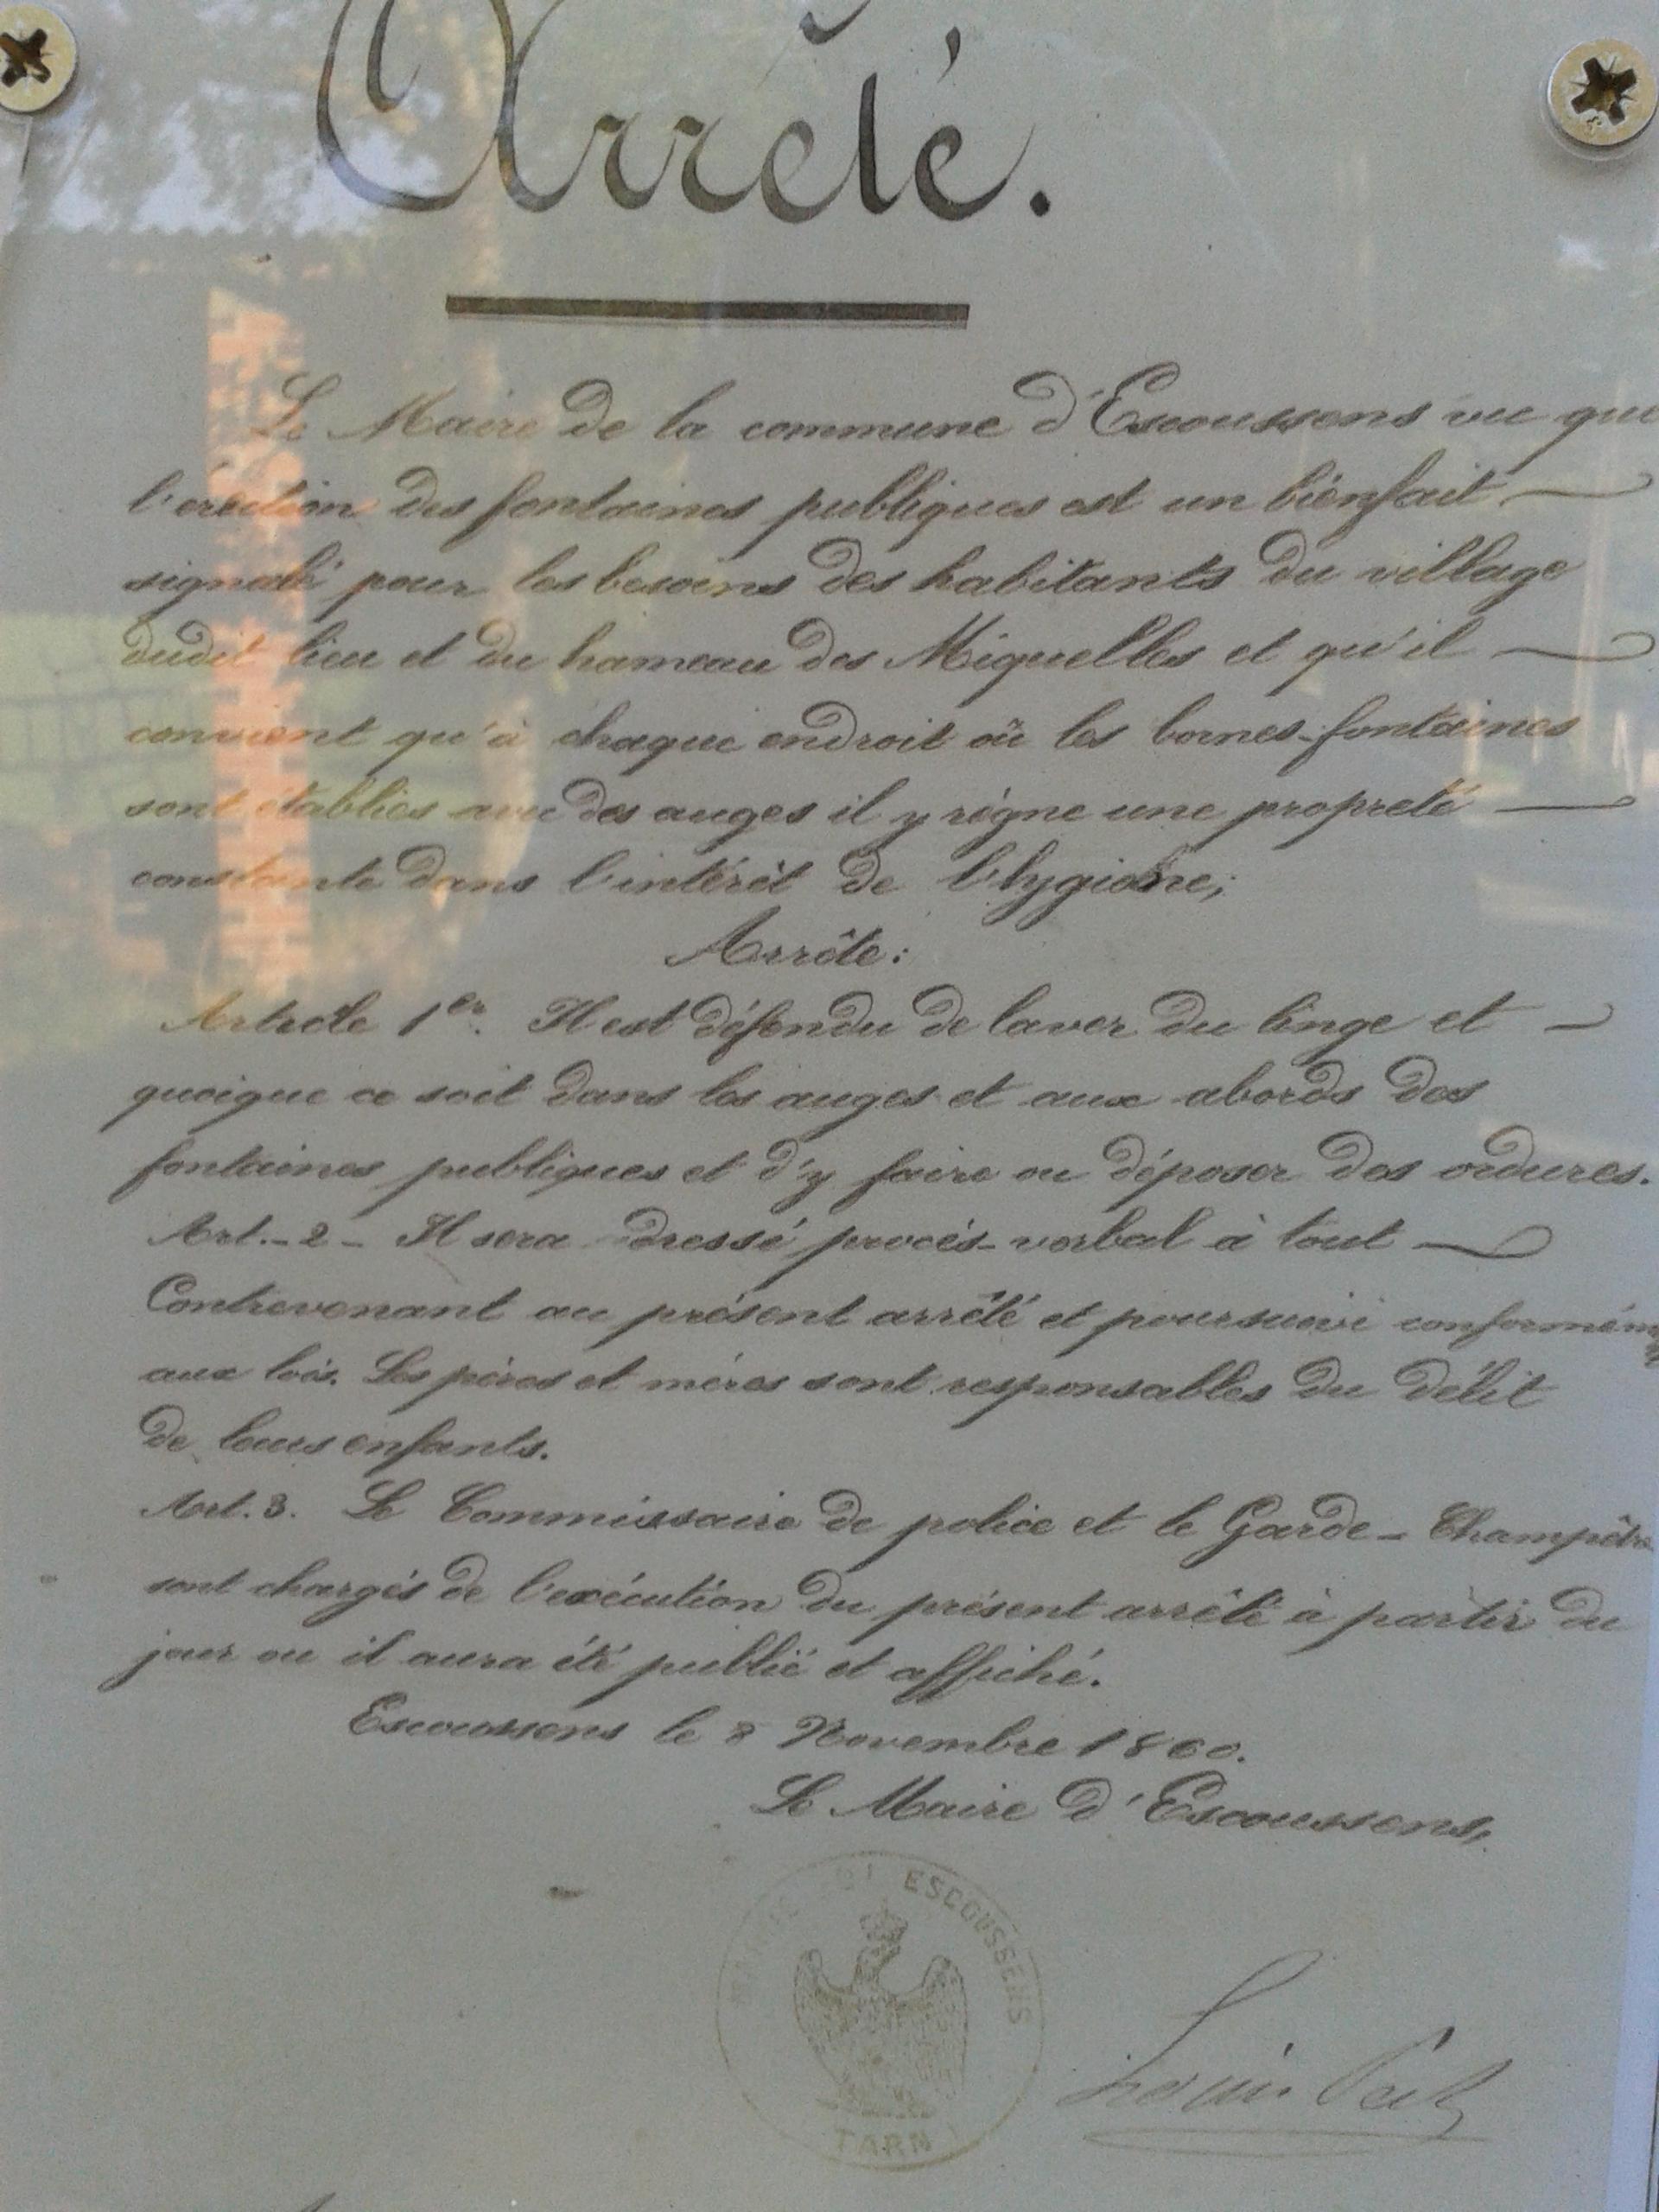 Arrêté.
Le Maire de la commune d'Escoussens vu que
l'erection des fontaines publiques est un bienfait
signalé pour les besoins des habitants du village
dudit lieu et du hameau des Miquelles et qu'il
convient qu'à chaque endroit où les bornes-fontaines
sont établies avec des auges il y règne une propreté
constante dans l'intérêt de l'hygiène;
Arrête:
Article 1er. Il est défendu de laver du linge et
quoique ce soit dans les auges et aux abords des
fontaines publiques et d'y faire ou déposer des ordures.
Art. - 2 - Il sera dressé procès-verbal à tout
Contrevenant au présent arrêté et poursuivi conformém
aux lois. Les pères et mères sont responsables du délit
de leurs enfants.
Art. 3. Le Commissaire de police et le Garde-Champêtre
sont chargés de l'exécution du présent arrêté à partir du
jour ou il aura été publié et affiché.
Escoussens le 8 Novembre 1860.
Le Maire d'Escoussens,
ESCOUSSENS
TARN